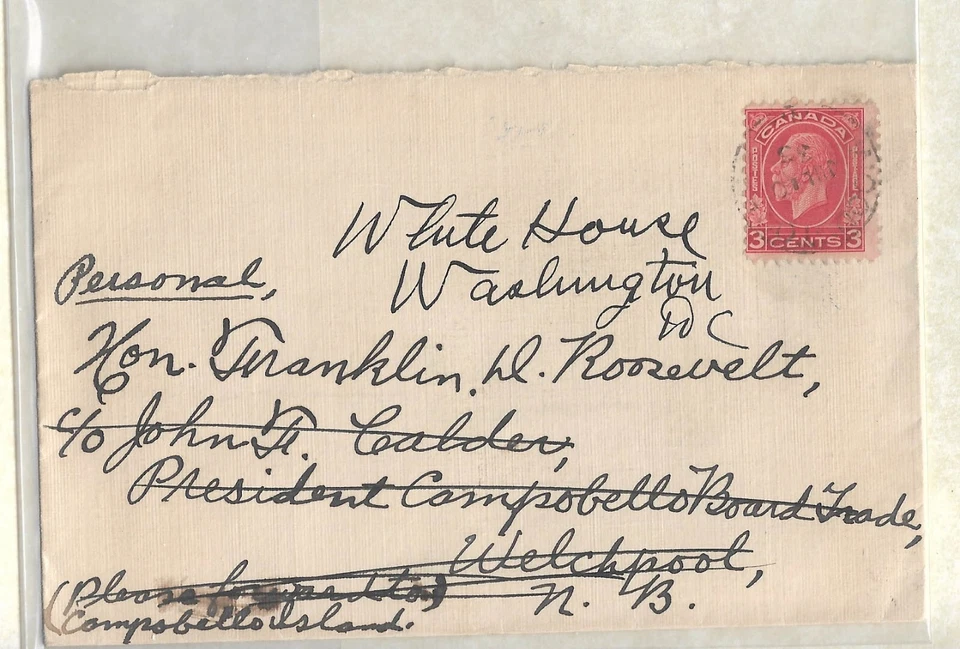 CANADA
POSTES
POSTAGE
3 CENTS 3
White House
Washington
DC
Personal,
Hon. Franklin. D. Roosevelt,
c/o John F. Calder,
President Campobello Board Trade,
Welchpool,
N. B.
(Please forward to)
Campobello Island.